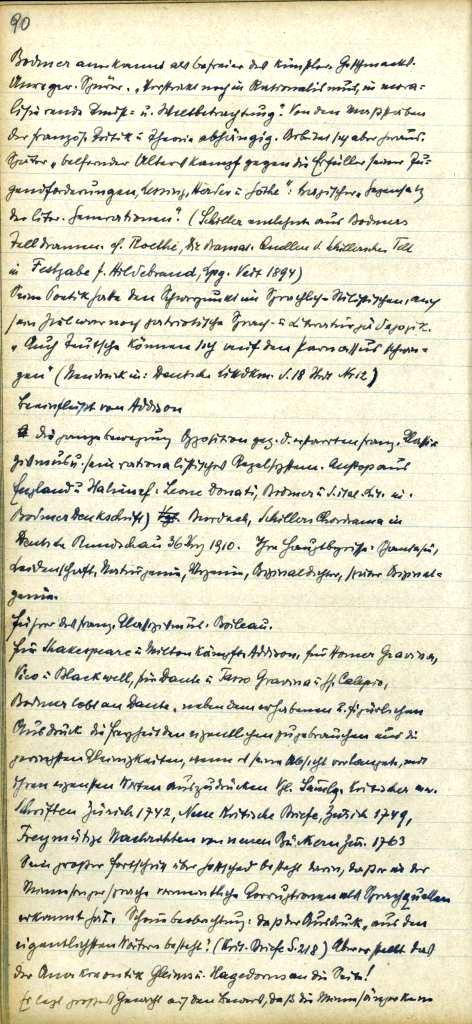 90
Bodmer anerkannt als Befreier des künstler. Geschmacks.
Anreger. Spürer. „Verstrickt noch in Rationalismus, in mora-
lisierende Kunst- u. Weltbetrachtung". Von den Maßstäben
der französ. Kritik u. Theorie abhängig. Bildet sich aber heraus.
Später „belfernder Alterskampf gegen die Erfüller seiner Ju-
gendforderungen, Lessing, Herder u. Göthe": tragischer Gegensatz
der liter. Generationen". (Schiller entlehnte aus Bodmers
Telldramen. cf. Roethe, die dramat. Quellen d. Schillerschen Tell
in Festgabe f. Hildebrand, Lpg. Veit 1894)
Seine Poetik habe den Schwerpunkt im Sprachlich-Stilistischen, auch
sein Ziel war noch patriotische Sprach- u. Literatur
„Auch Teutsche können sich auf den Parnassus schwin-
gen" (Neudruck in: Deutsche Litdkm. d. 18 Jhdt Nr 12)
Beeinflußt von Addison
die ganze Bewegung Opposition geg. d. erstarrten franz. Klassi-
zismus u. sein rationalistisches Regelsystem. Anstoß aus
England u. Italien cf. Leone Donati, Bodmer u. d. ital. Lit. in
Bodmer Denkschrift) Burdach, Schillers Chordrama in
Deutsche Rundschau 36 Jhrg 1910. Ihre Hauptbegriffe: Phantasie,
Leidenschaft, Naturgenie, Urgenie, Originaldichter, später Original-
genie.
Führer des franz. Klassizismus: Boileau.
Für Shakespeare u. Milton kämpfte Addison, für Homer Gravina,
Vico u. Blackwell, für Dante u. Tasso Gravina u. Calepio,
Bodmer lobt an Dante „neben dem erhabenen u. figürlichen
Ausdruck die Freyheit den eigentlichen zu gebrauchen und die
geringsten Kleinigkeiten, wenn es seine Absicht verlangete, mit
ihren eigensten Worten auszudrücken Vgl. Samlg. Kritischer
Schriften Zürich 1742, Neue Kritische Briefe, Zürich 1749,
Freymütige Nachrichten von neuen Büchern 1763
Sein großer Fortschritt über Gottsched besteht darin, daß er in der
Minnesingersprache vermeintliche Korruptionen als Sprachquellen
erkannt hat. Schon Beobachtung: daß der Ausdruck „aus den
eigentlichsten Wörtern besteht"! (Krit. Briefe S. 218) Aber er stellt das
der Anakreontik Gleims u. Hagedorns an die Seite!
Er legt großes Gewicht auf den Beweis, daß die Minnesänger